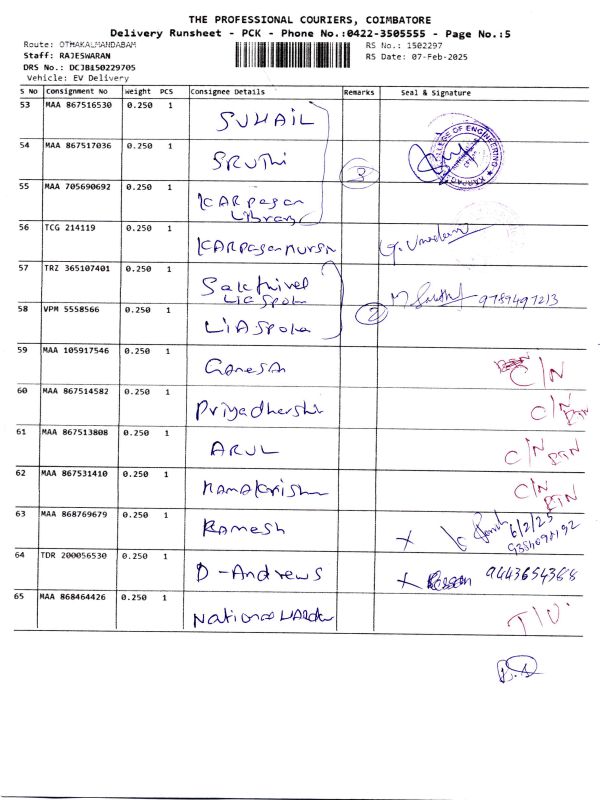 THE PROFESSIONAL COURIERS, COIMBATORE
Delivery Runsheet - PCK - Phone No.:0422-3505555 - Page No.:5
Route: OTHAKALMANDABAM
RS No.: 1502297
Staff: RAJESWARAN
RS Date: 07-Feb-2025
DRS No.: DCJB150229705
Vehicle: EV Delivery
S No Consignment No Weight PCS Consignee Details Remarks Seal & Signature
53 MAA 867516530 0.250 1 SUHAIL
54 MAA 867517036 0.250 1 SRUTHI
3
COLLEGE OF ENGINEERING
55 MAA 705690692 0.250 1 KARPagan
Library
56 TCG 214119 0.250 1 KARPagan nursn
57 TRZ 365107401 0.250 1 Sakthivel
Lia Spoka
9789497213
58 VPM 5558566 0.250 1 LiA Spoka
2
59 MAA 105917546 0.250 1 Ganesan C/N
60 MAA 867514582 0.250 1 Priyadharshi C/N
61 MAA 867513808 0.250 1 ARUL C/N
62 MAA 867531410 0.250 1 Ramakrishn C/N
63 MAA 868769679 0.250 1 Ramesh X 6/2/25
64 TDR 200056530 0.250 1 D-Andrews X 9443654368
65 MAA 868464426 0.250 1 National